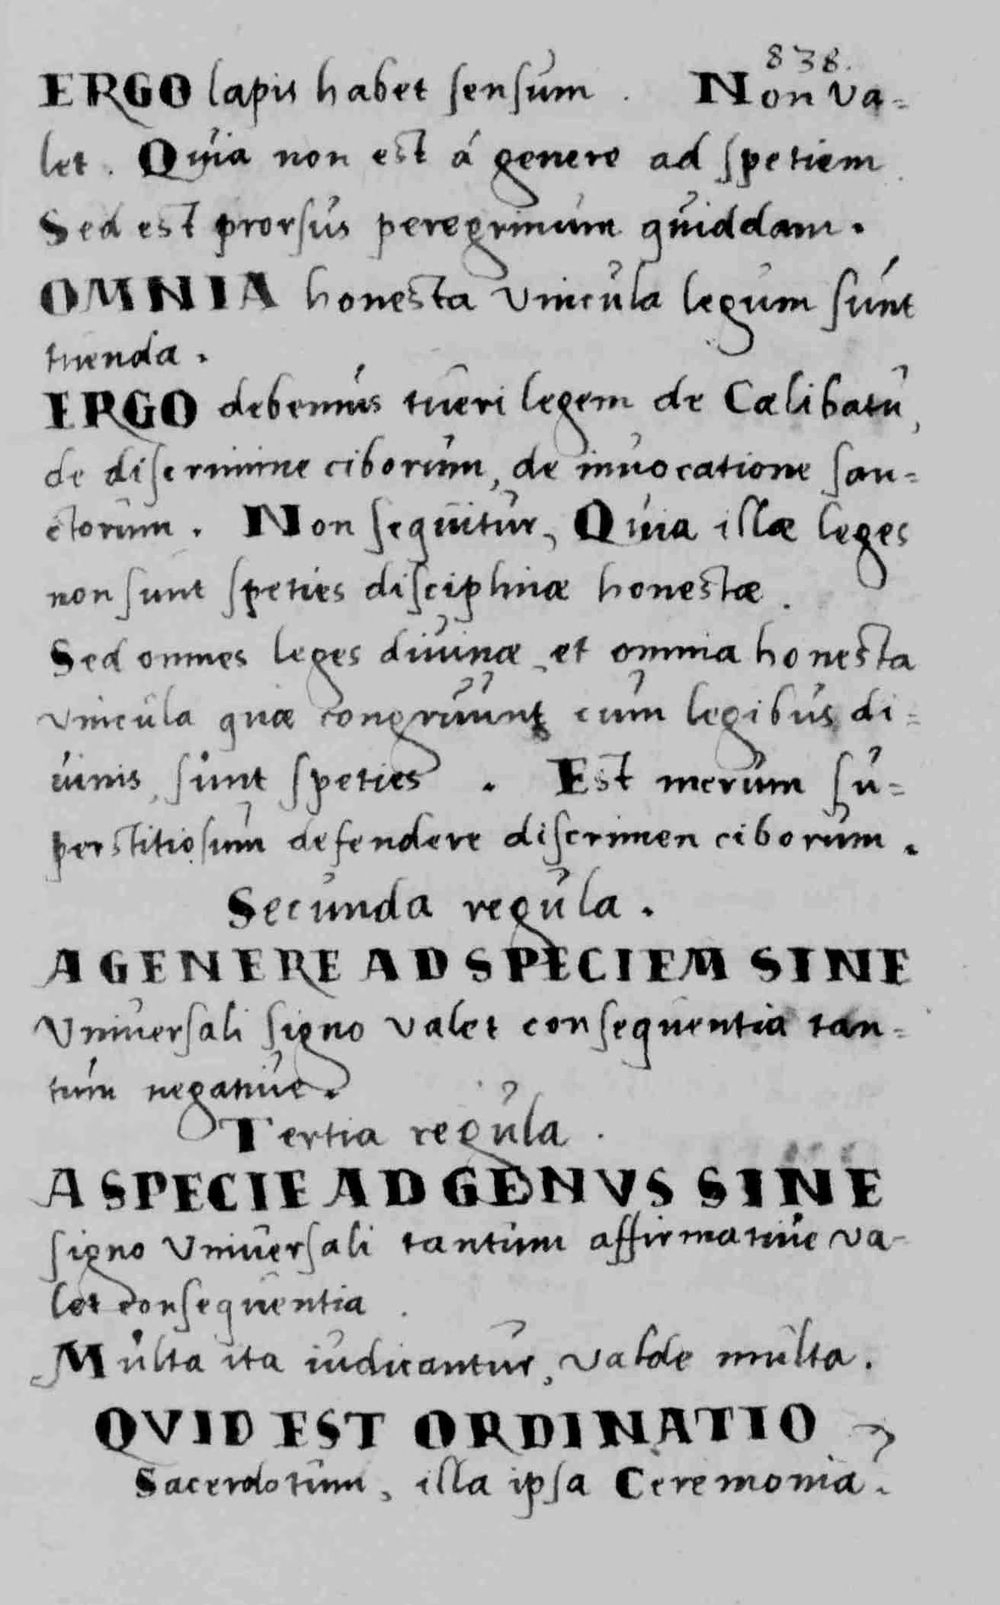 838.
ERGO lapis habet sensum . Non va-
let . Quia non est á genere ad spetiem
Sed est prorsus peregrinum quiddam .
OMNIA honesta vincula legum sunt
tuenda .
ERGO debemus tueri legem de Cælibatu,
de discrimine ciborum, de inuocatione san-
ctorum . Non sequitur, Quia illæ leges
non sunt speties disciplinæ honestæ .
Sed omnes leges diuinæ et omnia honesta
vincula quæ congruunt cum legibus di-
uinis, sunt speties . Est merum su-
perstitiosum defendere discrimen ciborum .
Secunda regula .
A GENERE AD SPECIEM SINE
Vniuersali signo valet consequentia tan-
tum negatiue .
Tertia regula .
A SPECIE AD GENVS SINE
signo Vniuersali tantum affirmatiue va-
let consequentia .
Multa ita iudicantur, valde multa .
QVID EST ORDINATIO
Sacerdotum, illa ipsa Ceremonia ?